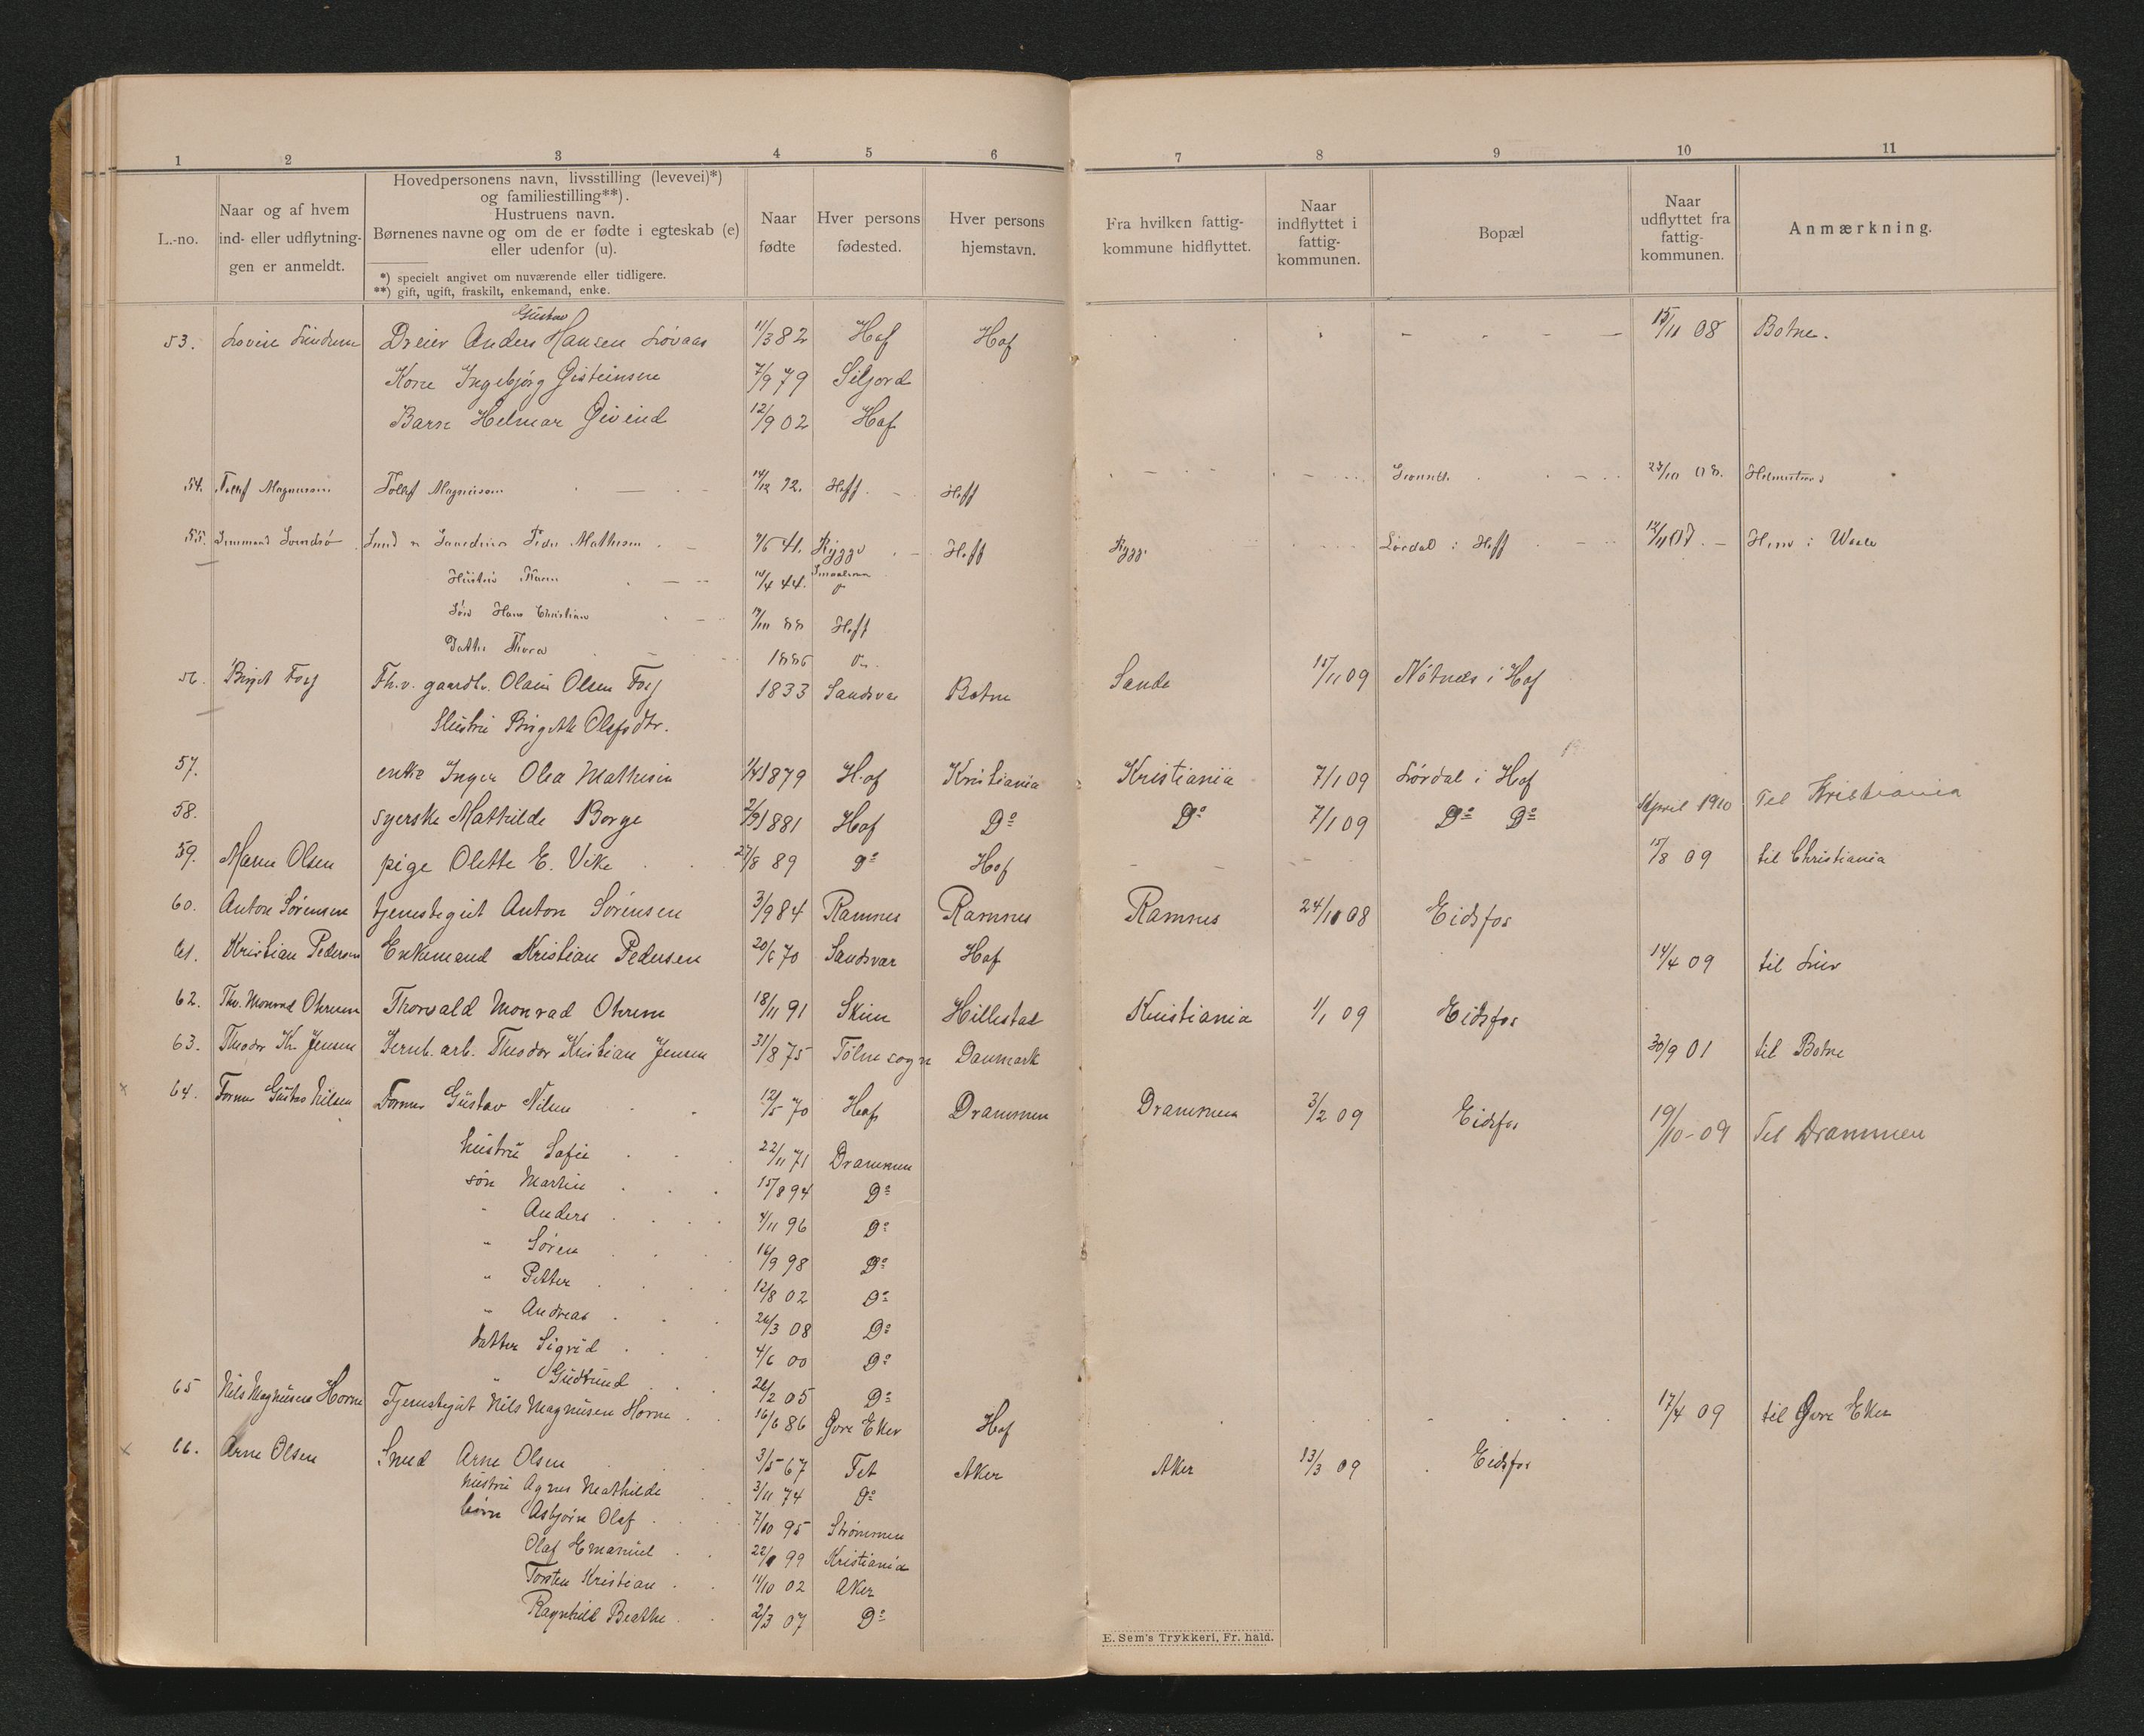 1 2 3 4 5 6 7 8 9 10 11
L.-no.
Naar og af hvem
ind- eller udflytning-
gen er anmeldt.
Hovedpersonens navn, livsstilling (levevei)*)
og familiestilling**).
Hustruens navn.
Børnenes navne og om de er fødte i egteskab (e)
eller udenfor (u).
*) specielt angivet om nuværende eller tidligere.
**) gift, ugift, fraskilt, enkemand, enke.
Naar
fødte
Hver persons
fødested.
Hver persons
hjemstavn.
Fra hvilken fattig-
kommune hidflyttet.
Naar
indflyttet i
fattig-
kommunen.
Bopæl
Naar
udflyttet fra
fattig-
kommunen.
Anmærkning.
Gustav
53. Dreier Anders Hansen Løvaas 11/3 82 Hof Hof 15/11 08 Botne.
Kone Ingebjørg Øisteinsen 7/9 79 Siljord
Barn Helmar Øivind 12/9 02 Hof
54. Tollef Magnusen Tollef Magnusen 14/12 92. Hoff Hoff 08.
55. Mathisen 41. Rygge Hoff Rygge Lørdal i Hoff
Hustru Karen 44. Do
Søn Hans Christian 88 Hoff
Datter Thora 1886 Do
56. Birgit Foss Th.v. gaardbr. Olsen Foss 1833 Sandsvær Botne Sande 15/11 09 i Hof
Hustru Birgitte Olafsdtr.
57. enke Inger Olea Mathisen 1879 Hof Kristiania Kristiania 7/1 09 Lørdal i Hof
58. syerske Mathilde Borge 1881 Hof Do Do 7/1 09 Do Do April 1910 Til Kristiania
59. Maren Olsen pige Olette E. Vike 27/8 89 Do Hof 15/8 09 til Christiania
60. Anton Sørensen tjenestegut Anton Sørensen 3/9 84 Ramnes Ramnes Ramnes 24/11 08 Eidsfos
61. Kristian Pedersen Enkemand Kristian Pedersen 20/6 70 Sandsvær Hof 14/4 09 til Lier
62. Th. Monrad Ohren Thorvald Monrad Ohren 18/11 91 Skien Hillestad Kristiania 1/1 09 Eidsfos
63. Theodor Kr. Jensen Jernb. arb. Theodor Kristian Jensen 31/8 75 Tølne sogn Danmark 30/9 01 til Botne
x 64. Former Gustav Nilsen Former Gustav Nilsen 12/5 70 Hof Drammen Drammen 3/2 09 Eidsfos 19/10-09 Til Drammen
hustru Sofie 22/11 71 Drammen
søn Martin 15/8 94 Do
" Anders 4/11 96 Do
" Søren 16/9 98 Do
" Petter 12/8 02 Do
" Andreas 26/3 08 Do
datter Sigrid 4/6 00 Do
" Gudrund 26/2 05 Do
65 Nils Magnusen Horne Tjenestegut Nils Magnusen Horne 16/6 86 Øvre Eker Hof 17/4 09 til Øvre Eker
x 66. Arne Olsen Smed Arne Olsen 3/5 67 Fet Aker Aker 13/3 09 Eidsfos
hustru Agnes Mathilde 3/11 74 Do
børn Asbjørn Olaf 7/10 95 Strømmen
Olaf Emanuel 99 Kristiania
Torsten Kristian 11/10 02 Aker
Ragnhild Beathe 2/3 07 Do
E. Sem's Trykkeri, Fr. hald.